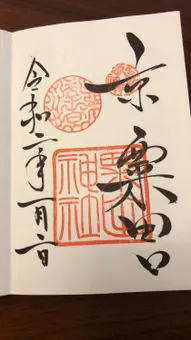 京 粟田口
令和二年一月二日
神社